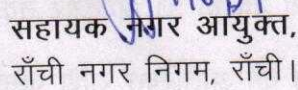 सहायक नगर आयुक्त,
राँची नगर निगम, राँची।